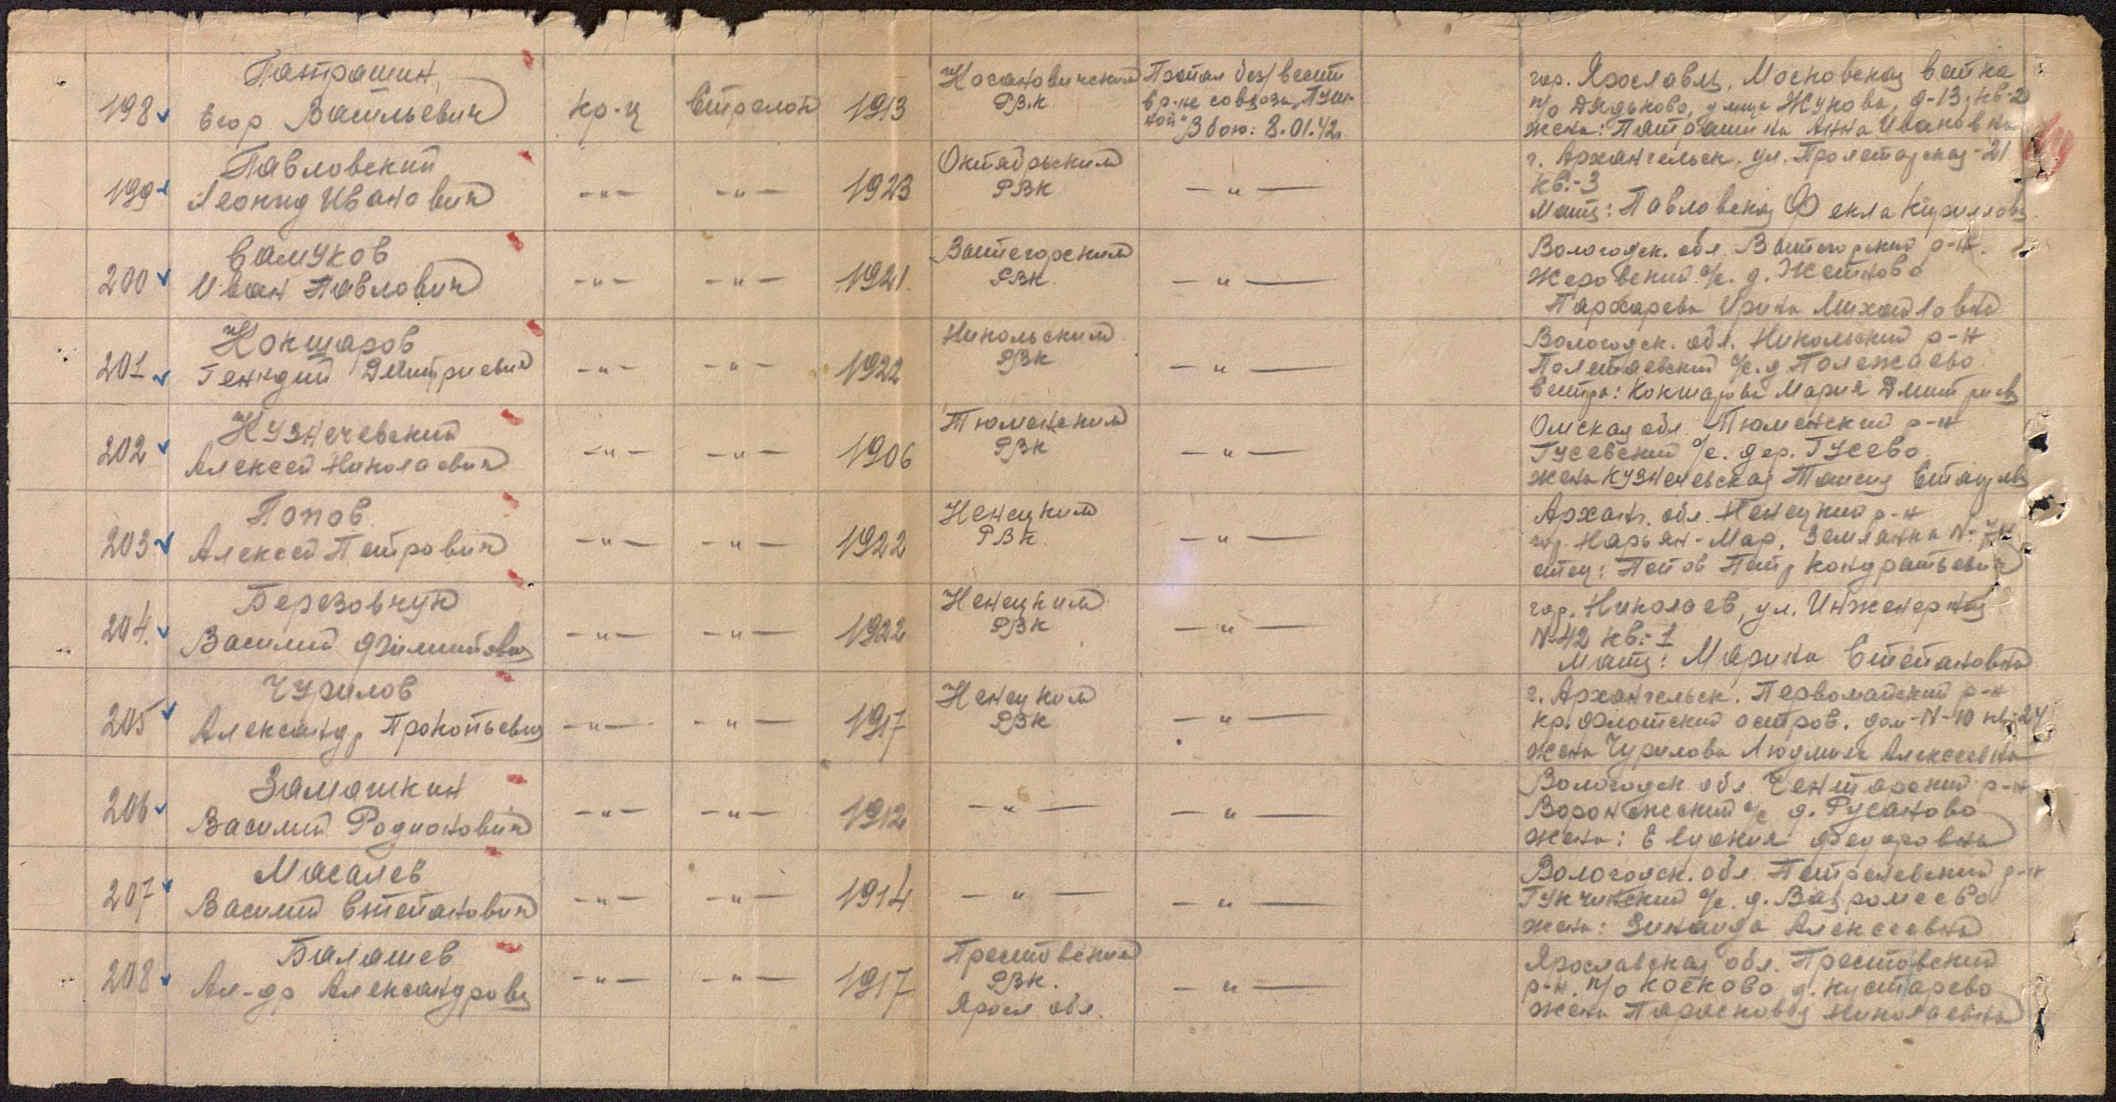 Патрашин
198 Егор Васильевич кр-ц Стрелок 1913 РВК Пропал без вести
в р-не совхоза "Пуш-
кой" В бою: 8.01.42
гор. Ярославль, Московская ветка
п/о Дядьково, улица Жукова, д-13, кв-2
жена: Патрашина Анна Ивановна
Павловский
199 Леонид Иванович -"- -"- 1923 Октябрьским РВК -"-
г. Архангельск. ул. Пролетарская-21
кв.-3
Мать: Павловская Фекла Кирилловн
Самуков
200 Иван Павлович -"- -"- 1921 РВК -"-
Вологодск. обл. р-н.
с/с. д.
Ирина Михайловна
Кокшаров
201 Генидий Дмитриевич -"- -"- 1922 Никольским РВК -"-
Вологодск. обл. Никольский р-н
с/с. д Полежаево
Сестра: Кокшарова Мария Дмитриев
Кузнечевский
202 Алексей Николаевич -"- -"- 1906 Тюменским РВК -"-
Омская обл. Тюменский р-н
Гусевский с/с. дер. Гусево
жена Кузнечевская Таисия
Попов
203 Алексей Петрович -"- -"- 1922 Ненецким РВК -"-
Архан. обл. Ненецкий р-н
гор. Нарьян-Мар, Землянка N-
отец: Попов Петр Кондратьевич
Березовчук
204. Василий -"- -"- 1922 Ненецким РВК -"-
гор. Николаев, ул. Инженерная
N-42 кв.-1
Мать: Марина Степановна
Чурилов
205 Александр Прокопьевич -"- -"- 1917 Ненецким РВК -"-
г. Архангельск. Первомайский р-н
кр. Флотский остров. дом-N-10 кв-24
Жена Чурилова Людмила Алексеевна
Замашкин
206 Василий Родионович -"- -"- 1912 -"- -"-
Вологодск обл. р-н
с/с д. Русаново
жена: Евдокия Федоровна
Масалев
207 Василий Степанович -"- -"- 1914 -"- -"-
Вологодск. обл. р-н
с/с. д.
жена: Зинаида Алексеевна
Балашев
208 Ал-др Александрович -"- -"- 1917 РВК. Яросл обл. -"-
Ярославская обл.
р-н. п/о Косково д. Кустарево
жена Николаевна